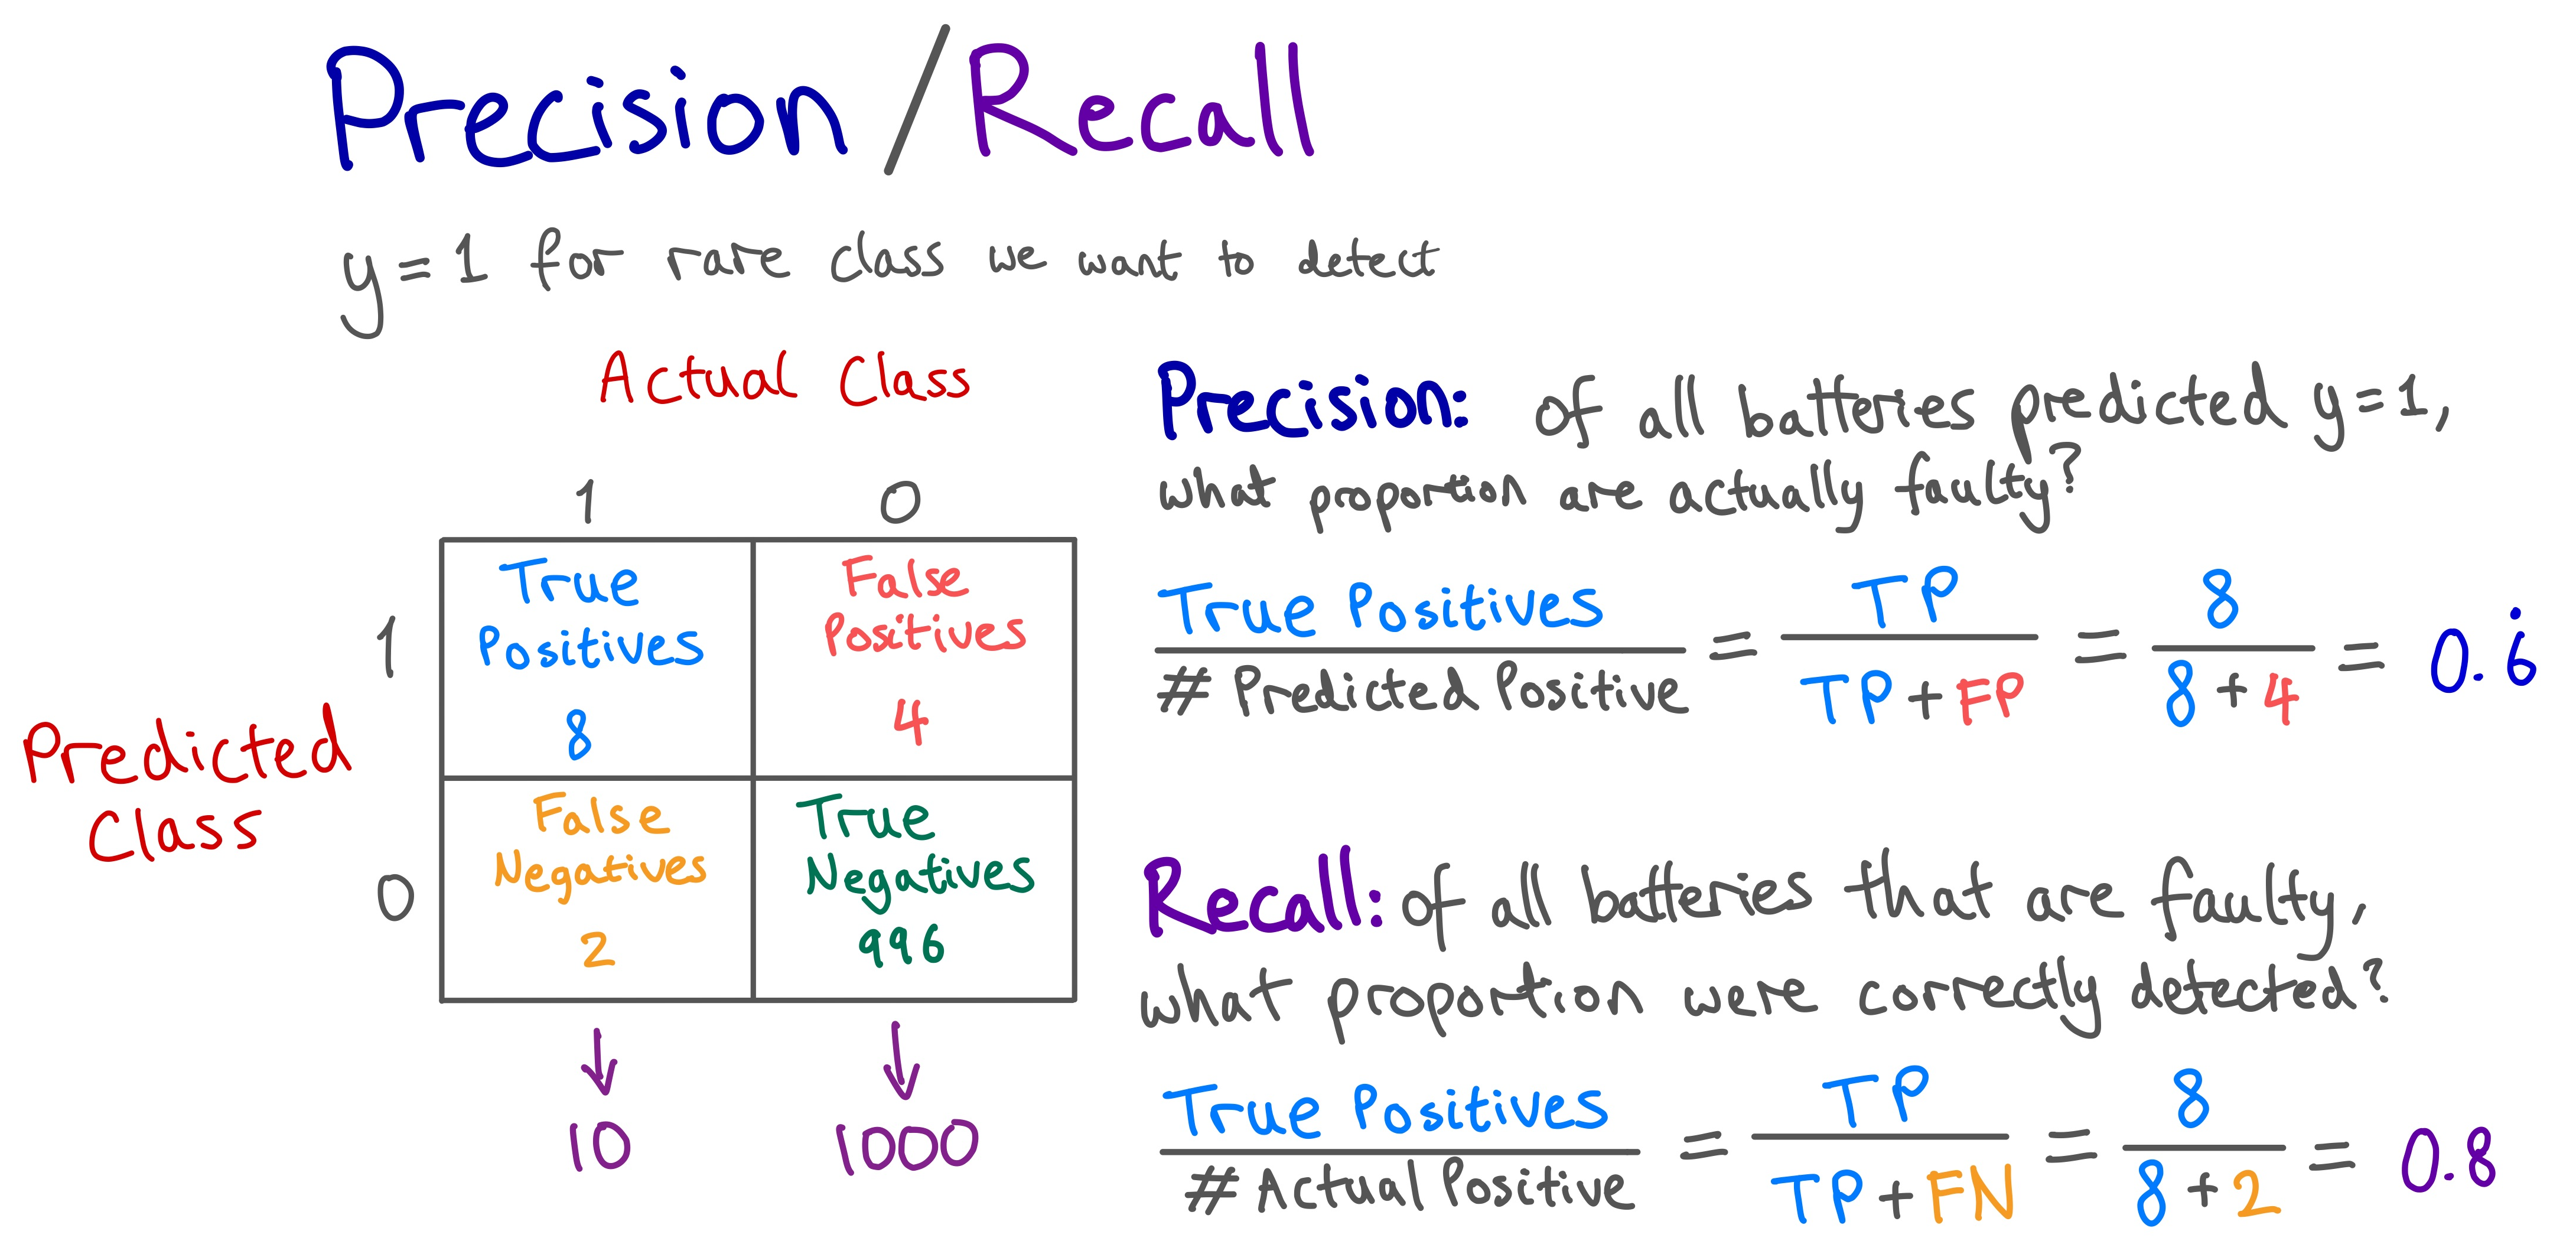 Precision/Recall
y=1 for rare class we want to detect
Actual Class
1 0
Predicted Class
1
True Positives
8
False Positives
4
0
False Negatives
2
True Negatives
996
10
1000
Precision: of all batteries predicted y=1,
what proportion are actually faulty?
True Positives / # Predicted Positive = TP / TP + FP = 8 / 8 + 4 = 0.6̇
Recall: of all batteries that are faulty,
what proportion were correctly detected?
True Positives / # Actual Positive = TP / TP + FN = 8 / 8 + 2 = 0.8